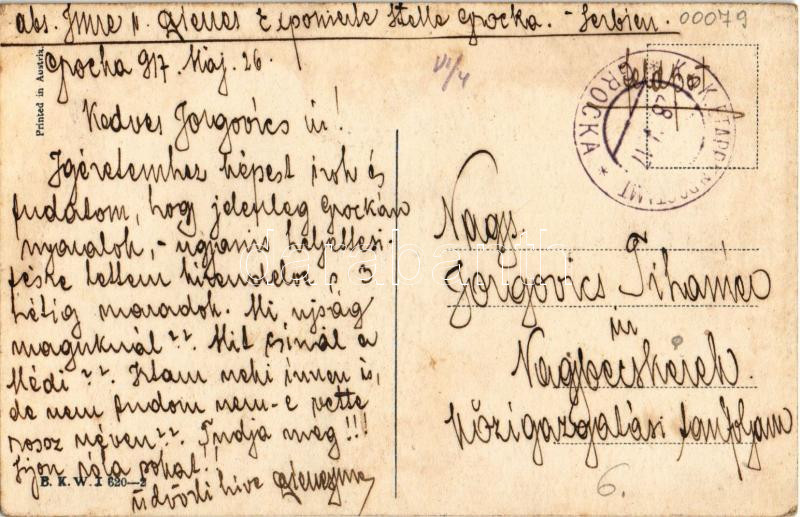 abs. Imre n. Exponierte Stelle Grocka. - Serbien.
00079
Grocka 917. Máj. 26.
VI/4
Feldpost
K. u. K. ETAPPENPOSTAMT
GROCKA
28. V. 17
Printed in Austria
Kedves Gorgovics úr!
Igéretemhez képest irok és
tudatom, hogy jelenleg Grockán
nyaralok, - ugyanis helyettesi-
téske lettem kirendelve s 3
hétig maradok. Mi ujság
maguknál?? Mit csinál a
Médi??. Irtam neki innen is,
de nem tudom nem-e vette
rossz néven??. Tudja meg!!!
Irjon róla sokat!
üdvözli hive
B. K. W. I 620-2
Nagys
Gorgovics Tihamér
úr
Nagybecskerek.
Közigazgatási tanfolyam
6.
darabanth